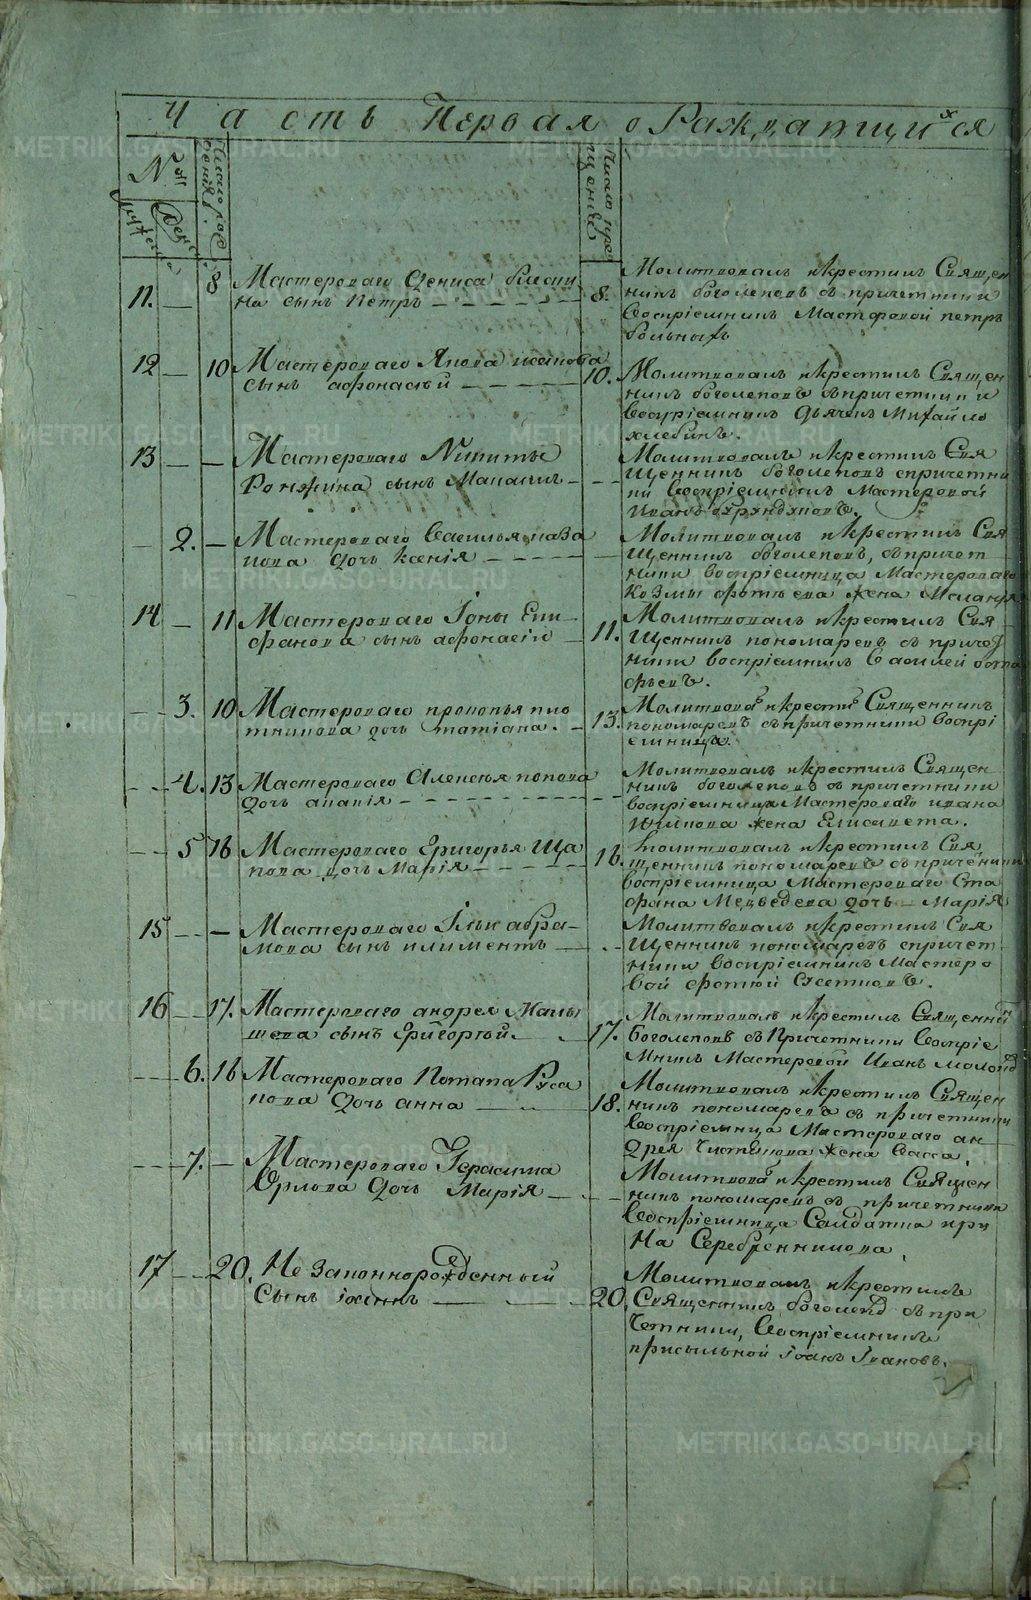 Часть Первая о Раждающихся
№
Число рождения
Число крещения
11. 8 Мастероваго Дениса
на сынъ Петръ 8.
Молитвовалъ и крестилъ Священ
никъ боголеповъ съ причетники
Воспріемникъ Мастеровой петръ
больныхъ
12 10 Мастероваго Якова исакова
сынъ афонасей 10.
Молитвовалъ и крестилъ Священ
никъ боголеповъ съ причетники
Воспріемникъ Дьячекъ Михайло
хлебинъ.
13 Мастероваго Никиты
Ронжина сынъ Макаилъ
Молитвовалъ и крестилъ Свя
щенникъ боголеповъ спричетни
ки Воспріемникъ Мастеровой
Иванъ
2. Мастероваго Василья каза
кова дочь ксенія
Молитвовалъ и крестилъ Свя
щенникъ боголеповъ, съ причет
ники воспріемница Мастероваго
Козмы фотеева жена Меланья
14 11 Мастероваго Іоны Епи
фанова сынъ афонасій 11.
Молитвовалъ и крестилъ Свя
щенникъ пономаревъ съ причет
ники воспріемникъ Василей
фьевъ.
3. 10 Мастероваго прокопья пло
тникова дочь татіана. 13.
Молитвовалъ и крестилъ Священникъ
пономаревъ съ причетники воспрі
емница.
4. 13 Мастероваго Алексея попова
дочь
Молитвовалъ и крестилъ Священ
никъ боголеповъ съ причетники
воспріемница Мастероваго ивана
жена Елисавета.
5 16 Мастероваго Григорья Ща
пова дочь Марія 16.
Молитвовалъ и крестилъ Свя
щенникъ пономаревъ съ причетники
воспріемница Мастероваго Сте
фана Медведева дочь Марія
15 Мастероваго Ильи абра
мова сынъ климентъ
Молитвовалъ и крестилъ Свя
щенникъ пономаревъ спричет
ники воспріемникъ Мастеро
вой фотей
16 17. Мастероваго андрея Малы
шева сынъ Григорий 17.
Молитвовалъ и крестилъ Священникъ
Боголеповъ съ Причетники Воспріе
мникъ Мастеровой Иванъ
6. 16 Мастероваго Романа Руса
кова Дочь анна 18.
Молитвовалъ и крестилъ Священ
никъ пономаревъ съ причетники
Воспріемница Мастероваго ан
дрея Чистякова жена Васса.
7. Мастероваго Герасима
Орлова Дочь Марія
Молитвовалъ и крестилъ Священ
никъ пономаревъ съ причетники
Воспріемница Салдатка ири
на Серебренникова.
17 20. Не Законнорожденный
Сынъ іоаннъ 20.
Молитвовалъ и крестилъ
Священникъ боголепов съ при
четники, Воспріемникъ
присыльной іоанъ Ивановъ.